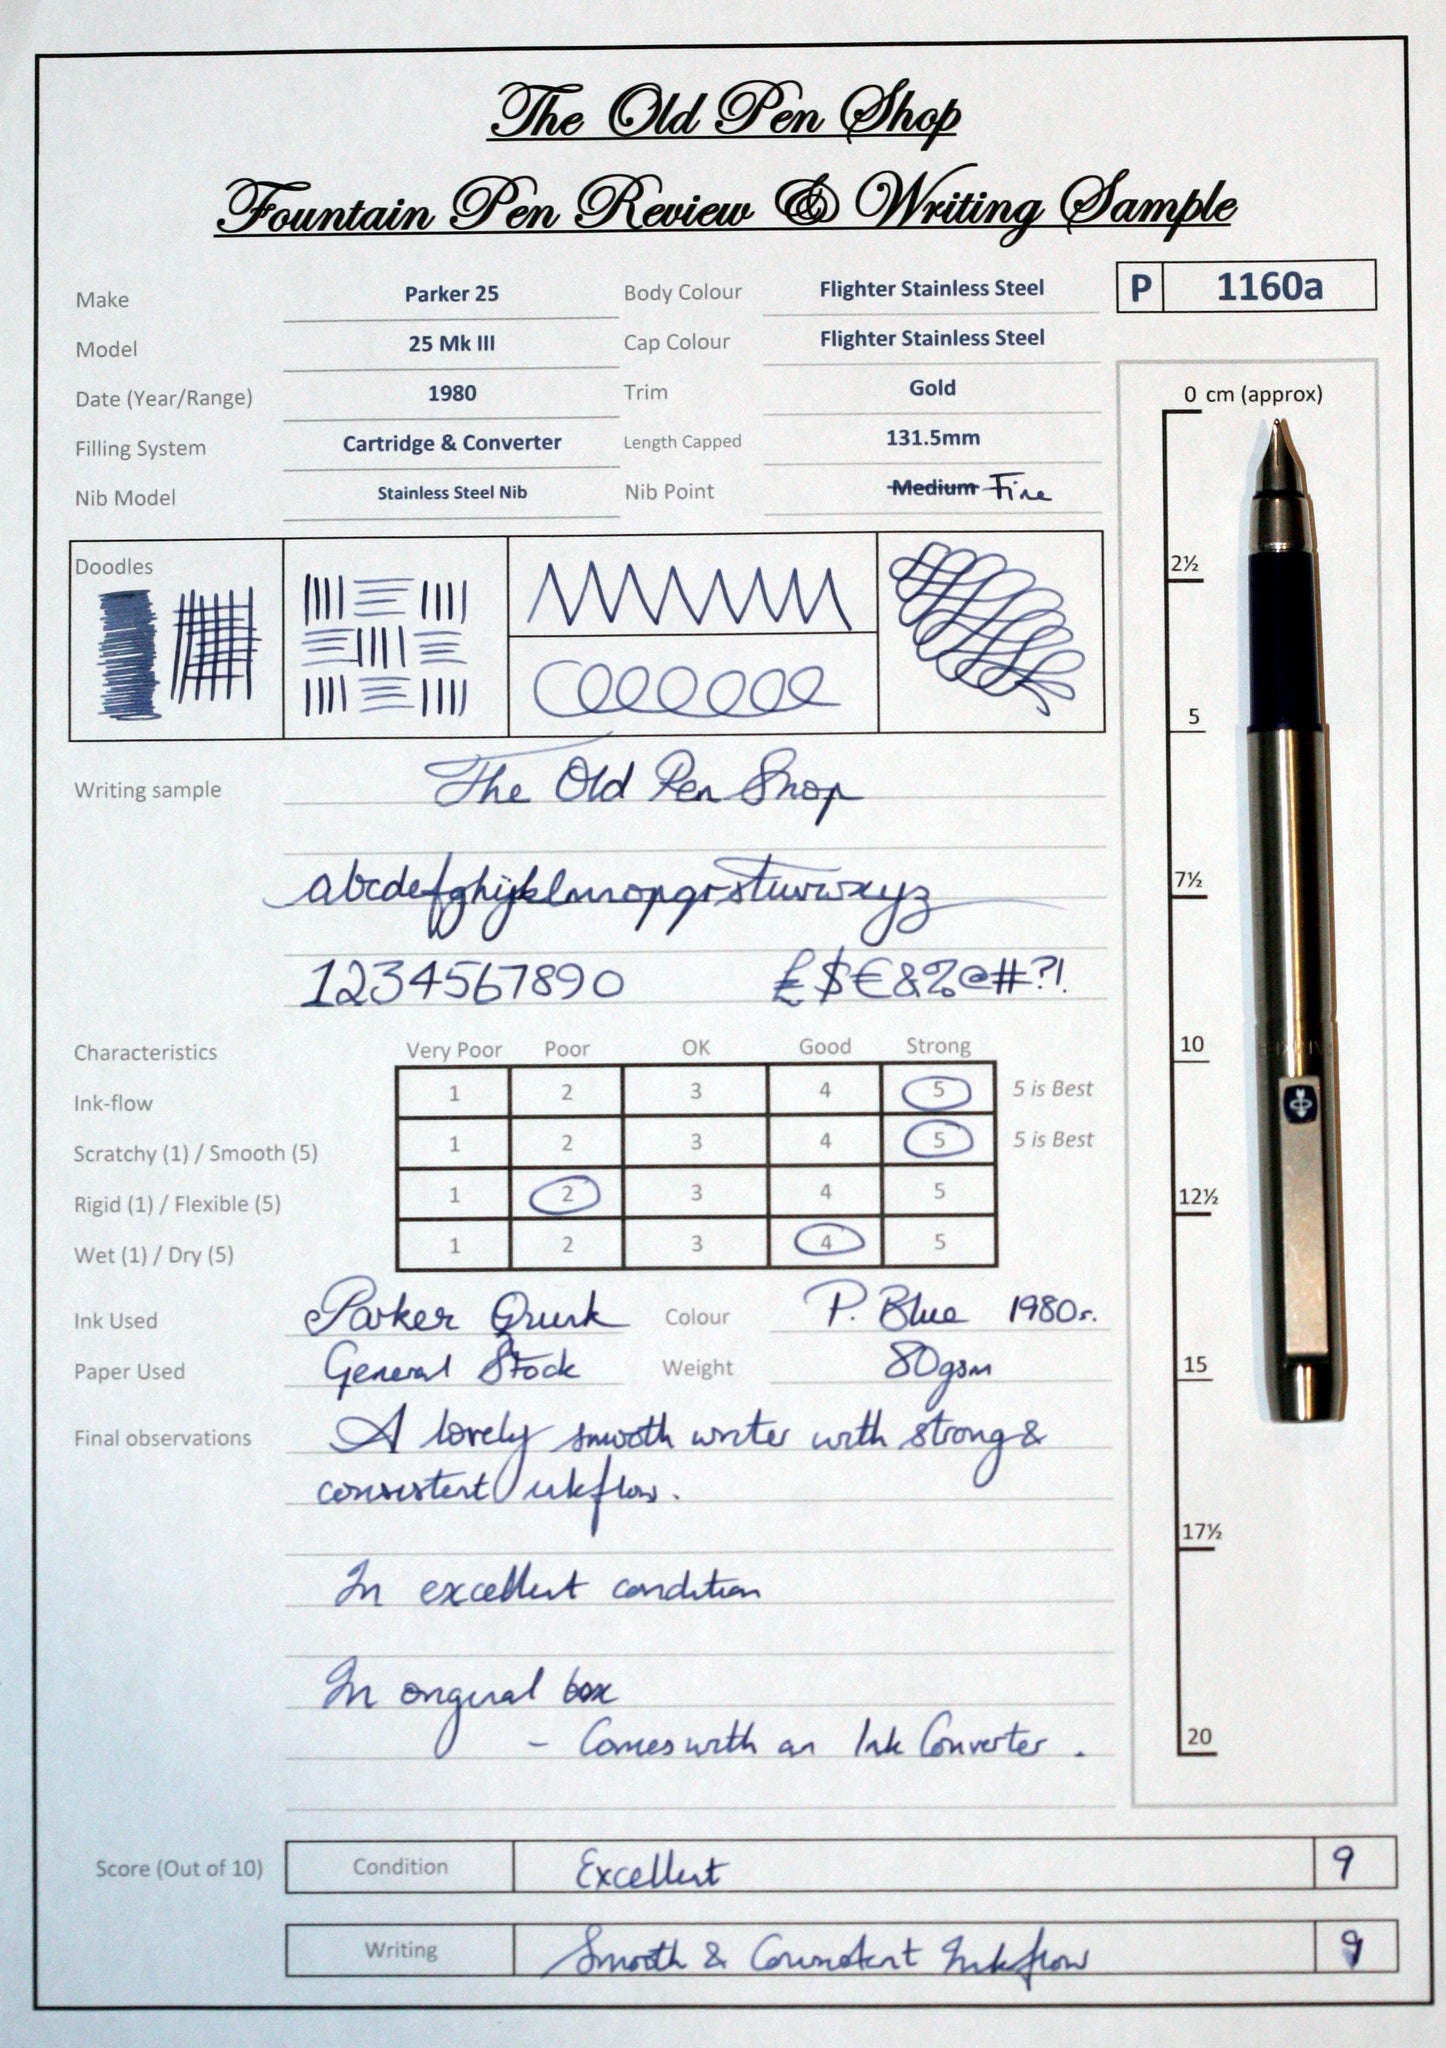 The Old Pen Shop
Fountain Pen Review & Writing Sample
P 1160a
Make Parker 25 Body Colour Flighter Stainless Steel
Model 25 Mk III Cap Colour Flighter Stainless Steel
Date (Year/Range) 1980 Trim Gold
Filling System Cartridge & Converter Length Capped 131.5mm
Nib Model Stainless Steel Nib Nib Point Medium Fine
Doodles
Writing sample The Old Pen Shop
abcdefghijklmnopqrstuvwxyz
1234567890 £$€&%@#?!
Characteristics Very Poor Poor OK Good Strong
Ink-flow 1 2 3 4 5 5 is Best
Scratchy (1) / Smooth (5) 1 2 3 4 5 5 is Best
Rigid (1) / Flexible (5) 1 2 3 4 5
Wet (1) / Dry (5) 1 2 3 4 5
Ink Used Parker Quink Colour P. Blue 1980s.
Paper Used General Stock Weight 80gsm
Final observations A lovely smooth writer with strong &
consistent inkflow.
In excellent condition
In original box
- Comes with an Ink Converter.
Score (Out of 10) Condition Excellent 9
Writing Smooth & Consistent Inkflow 9
0 cm (approx)
2½
5
7½
10
12½
15
17½
20
PARKER